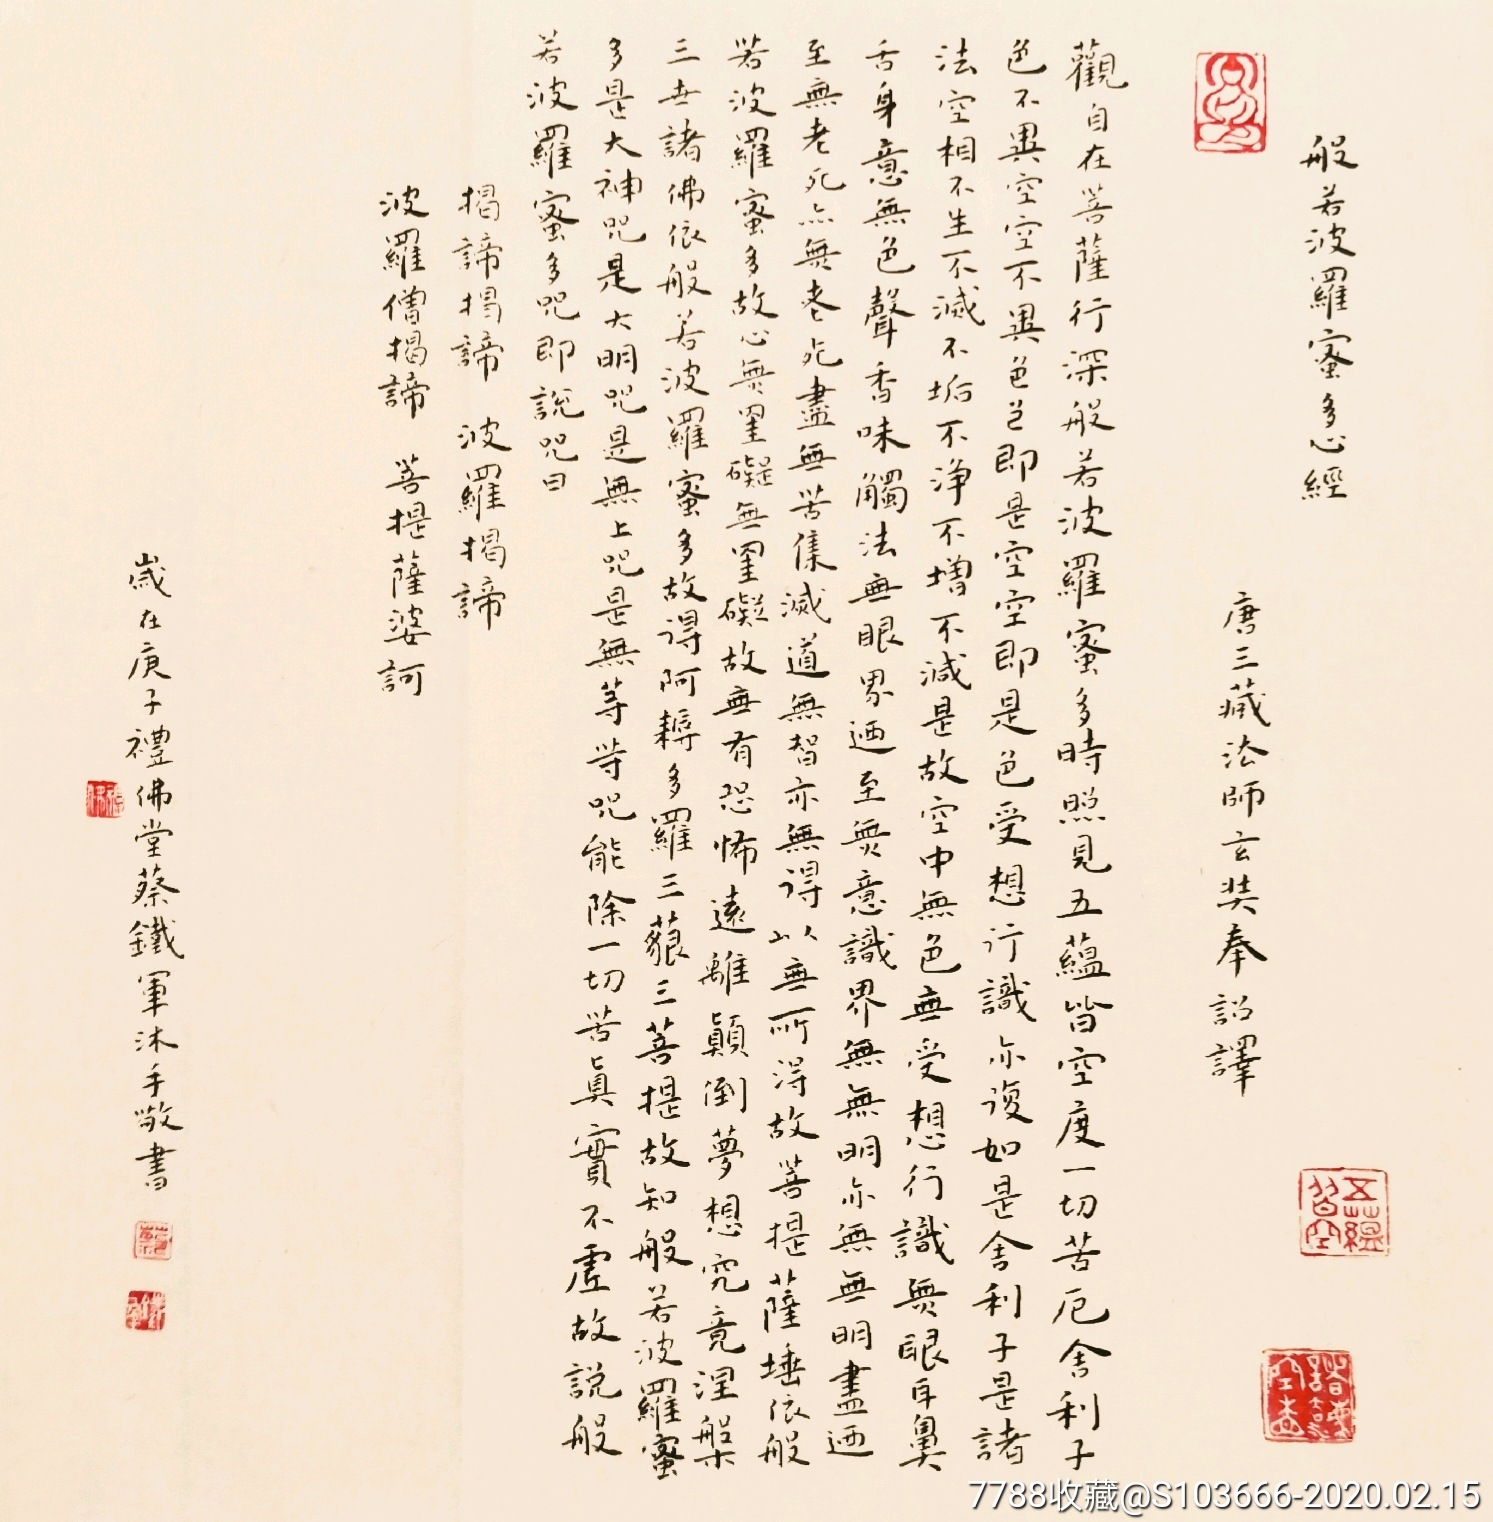 般若波羅蜜多心經
唐三藏法師玄奘奉詔譯
觀自在菩薩行深般若波羅蜜多時照見五蘊皆空度一切苦厄舍利子
色不異空空不異色色即是空空即是色受想行識亦復如是舍利子是諸
法空相不生不滅不垢不淨不增不減是故空中無色無受想行識無眼耳鼻
舌身意無色聲香味觸法無眼界迺至無意識界無無明亦無無明盡迺
至無老死亦無老死盡無苦集滅道無智亦無得以無所得故菩提薩埵依般
若波羅蜜多故心無罣礙無罣礙故無有恐怖遠離顛倒夢想究竟涅槃
三世諸佛依般若波羅蜜多故得阿耨多羅三藐三菩提故知般若波羅蜜
多是大神咒是大明咒是無上咒是無等等咒能除一切苦真實不虛故說般
若波羅蜜多咒即說咒曰
揭諦揭諦 波羅揭諦
波羅僧揭諦 菩提薩婆訶
歲在庚子禮佛堂蔡鐵軍沐手敬書
五蘊皆空
7788收藏@S103666-2020.02.15